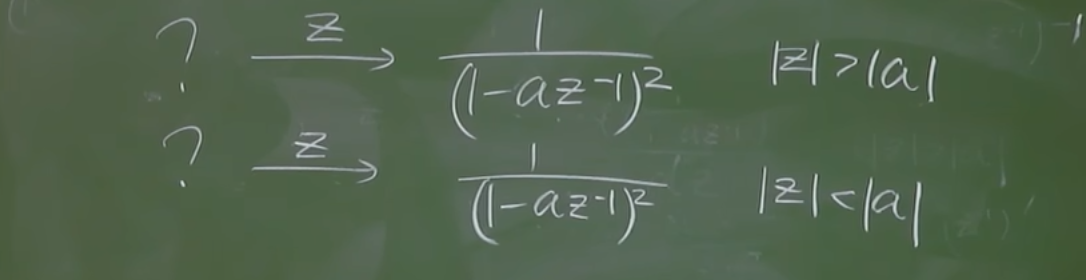 ? z→ 1/(1-az⁻¹)² |z|>|a|
? z→ 1/(1-az⁻¹)² |z|<|a|